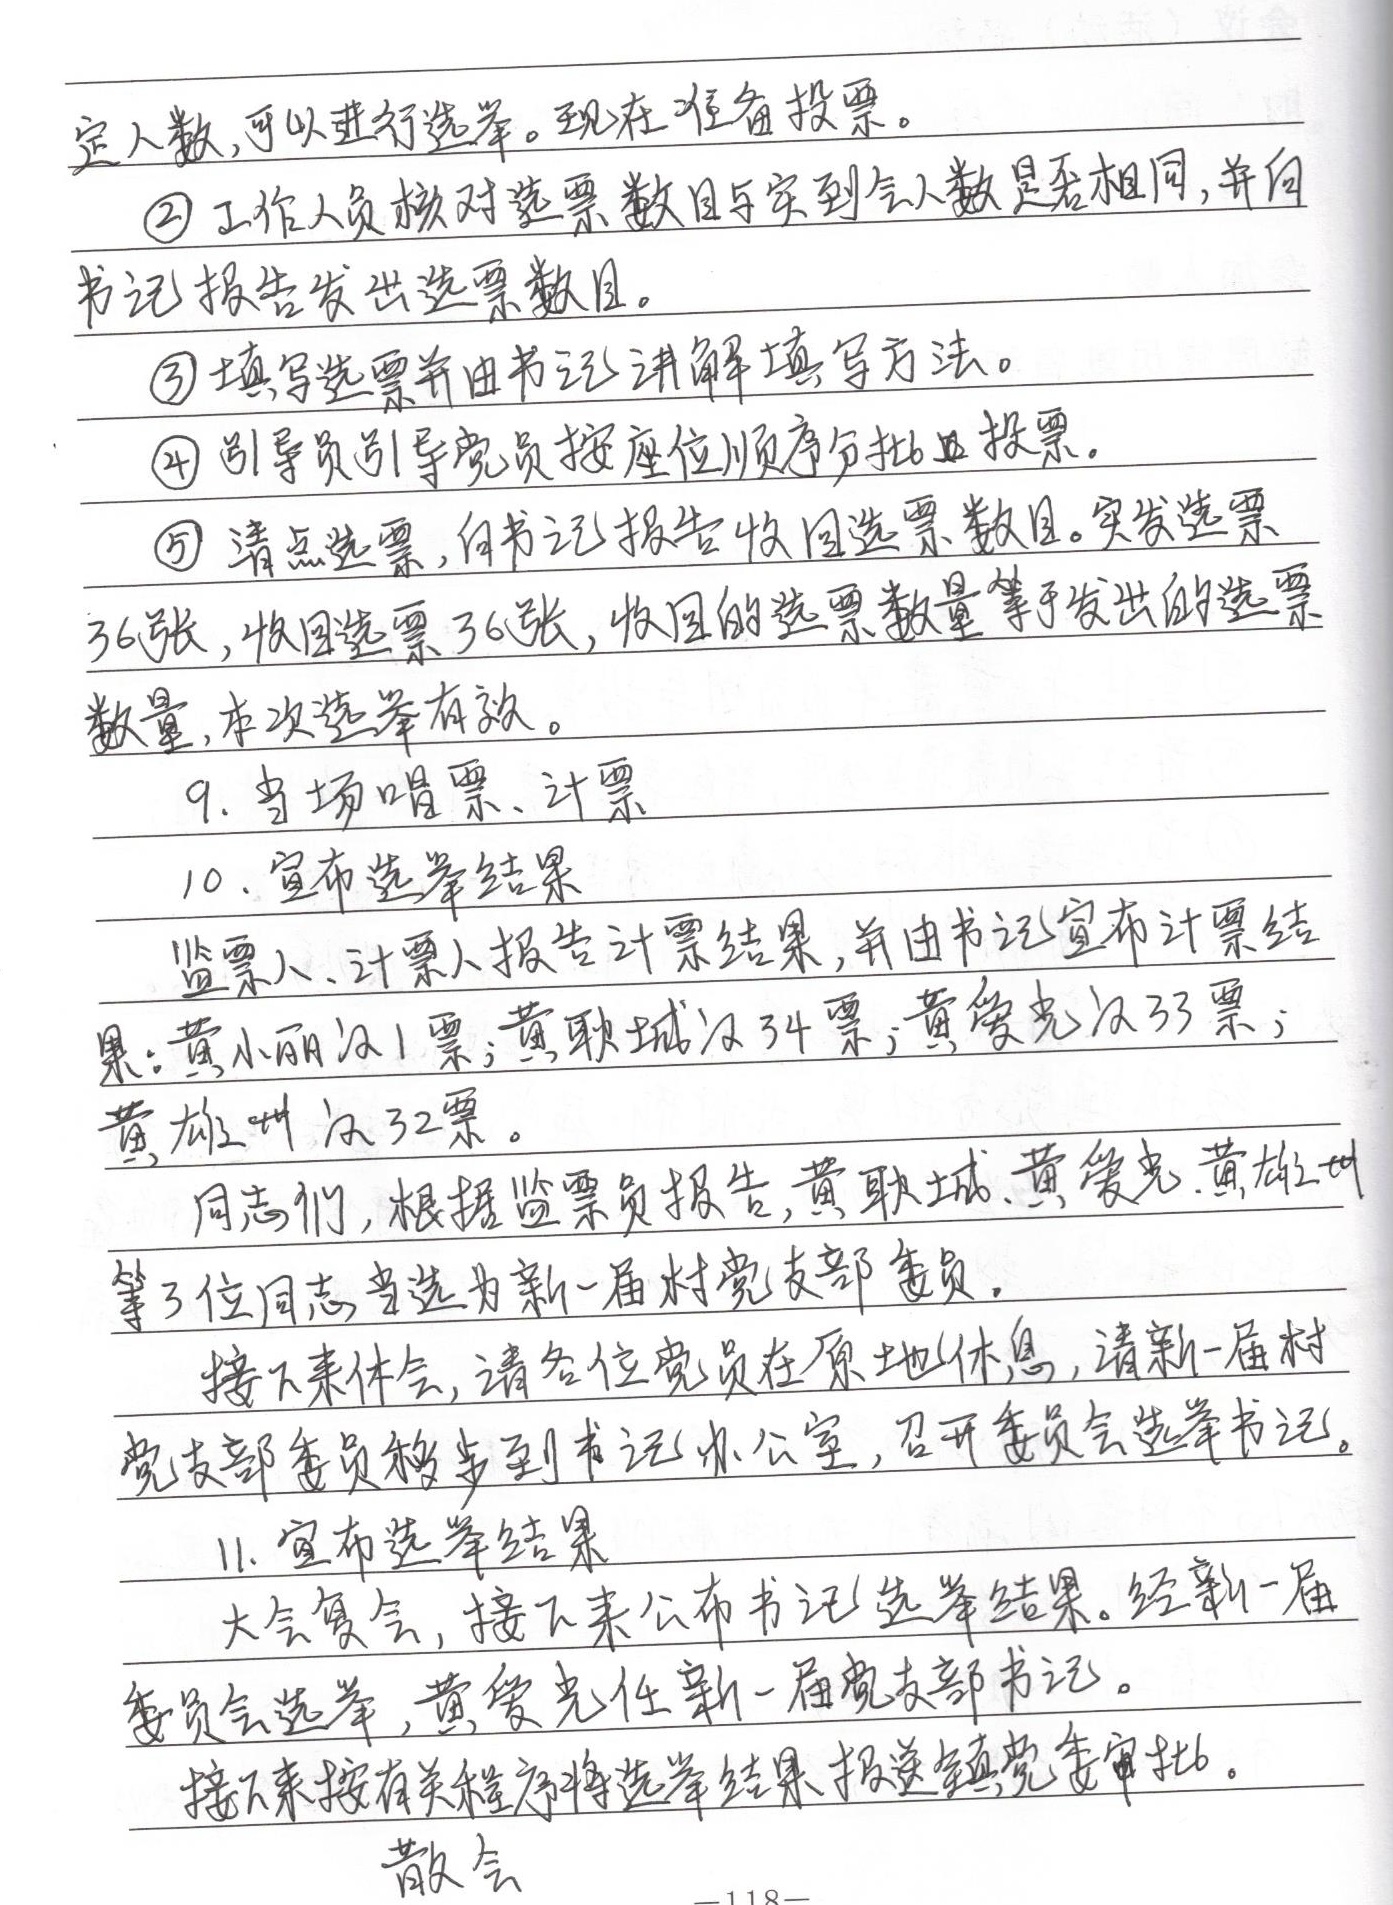 定人数,可以进行选举。现在准备投票。
②工作人员核对选票数目与实到会人数是否相同,并向
书记报告发出选票数目。
③填写选票并由书记讲解填写方法。
④引导员引导党员按座位顺序分批投票。
⑤清点选票,向书记报告收回选票数目。实发选票
36张,收回选票36张,收回的选票数量等于发出的选票
数量,本次选举有效。
9.当场唱票、计票
10.宣布选举结果
监票人、计票人报告计票结果,并由书记宣布计票结
果:黄小丽汉1票;黄耿城汉34票;黄爱光汉33票;
黄雄汉32票。
同志们,根据监票员报告,黄耿城、黄爱光、黄雄
等3位同志当选为新一届村党支部委员。
接下来休会,请各位党员在原地休息,请新一届村
党支部委员移步到书记办公室,召开委员会选举书记。
11.宣布选举结果
大会复会,接下来公布书记选举结果。经新一届
委员会选举,黄爱光任新一届党支部书记。
接下来按有关程序将选举结果报送镇党委审批。
散会
—118—